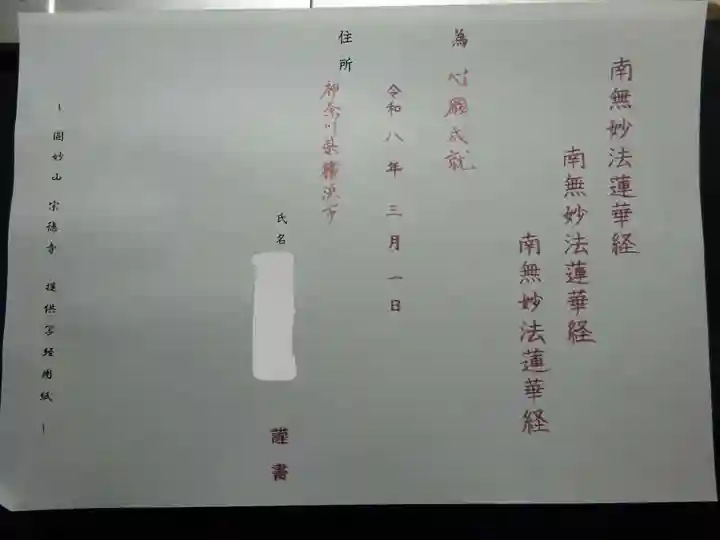 南無妙法蓮華経
南無妙法蓮華経
南無妙法蓮華経
為 心願成就
令和八年三月一日
住所 神奈川県横浜市
氏名
謹書
~ 圓妙山 宗徳寺 提供写経用紙 ~